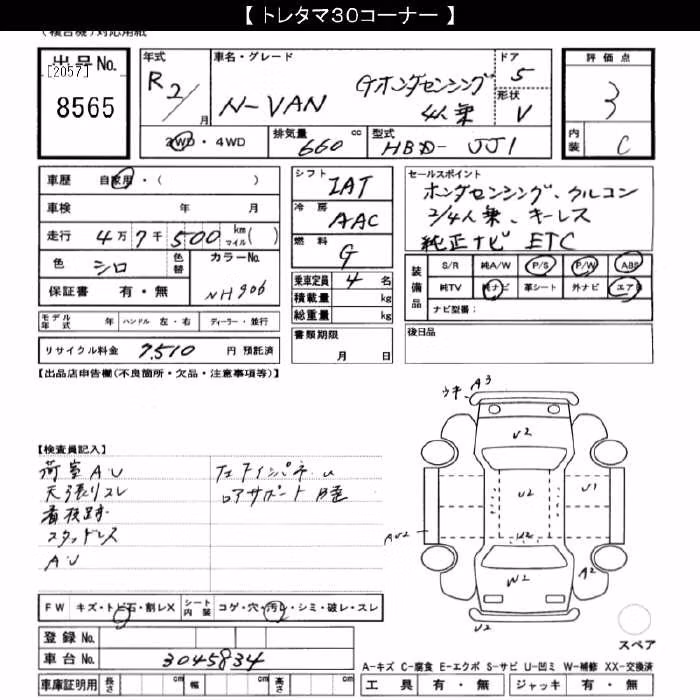 【 トレタマ30コーナー 】
(複合機)対応用紙
出品No.
[2057]
8565
年式
R2/
月
車名・グレード
N-VAN
Gホンダセンシング
4人乗
ドア
5
形状
V
評価点
3
内装
C
2WD・4WD
排気量
660
cc
型式
HBD-JJ1
車歴 自家用・( )
車検 年 月
走行 4万7千500 km マイル( )
色 シロ
色替
カラーNo.
NH906
保証書 有・無
シフト
IAT
冷房
AAC
燃料
G
乗車定員 4 名
積載量 kg
総重量 kg
セールスポイント
ホンダセンシング、クルコン
2/4人乗、キーレス
純正ナビ ETC
装備品
S/R 純A/W P/S P/W ABS
純TV 純ナビ 革シート 外ナビ エアB
ナビ型番:
モデル年式 年 ハンドル 左・右 ディーラー・並行
リサイクル料金 7,510 円 預託済
書類期限
月 日
後日品
【出品店申告欄(不良箇所・欠品・注意事項等)】
【検査員記入】
荷室A・U
天張りスレ
看板跡
スタッドレス
A・U
左Fインパネ u
ロアサポート
ウキ A3
U2
U2
U1
AU2
W2
A2
U2
スペア
FW キズ・トビ石・割レX シート内装 コゲ・穴・汚レ・シミ・破レ・スレ
登録No.
車台No. 3045834
車庫証明用 長さ cm 幅 cm 高さ cm
A-キズ C-腐食 E-エクボ S-サビ U-凹ミ W-補修 XX-交換済
工具 有・無 ジャッキ 有・無